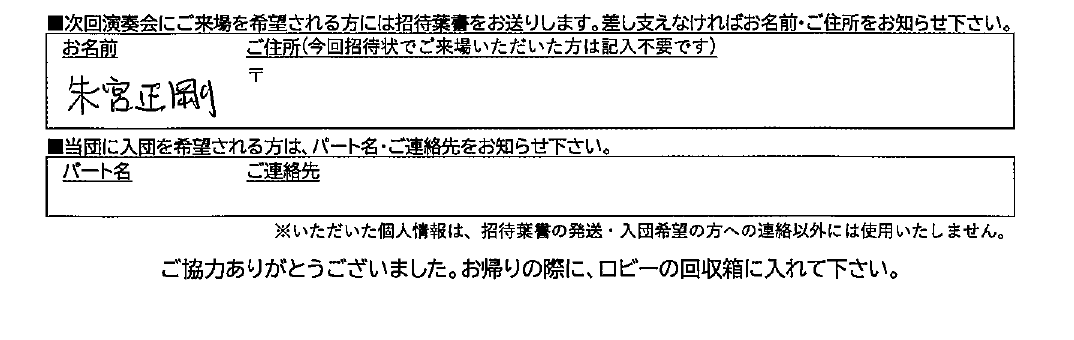 ■次回演奏会にご来場を希望される方には招待葉書をお送りします。差し支えなければお名前・ご住所をお知らせ下さい。
お名前 ご住所(今回招待状でご来場いただいた方は記入不要です)
〒
朱宮正剛
■当団に入団を希望される方は、パート名・ご連絡先をお知らせ下さい。
パート名 ご連絡先
※いただいた個人情報は、招待葉書の発送・入団希望の方への連絡以外には使用いたしません。
ご協力ありがとうございました。お帰りの際に、ロビーの回収箱に入れて下さい。